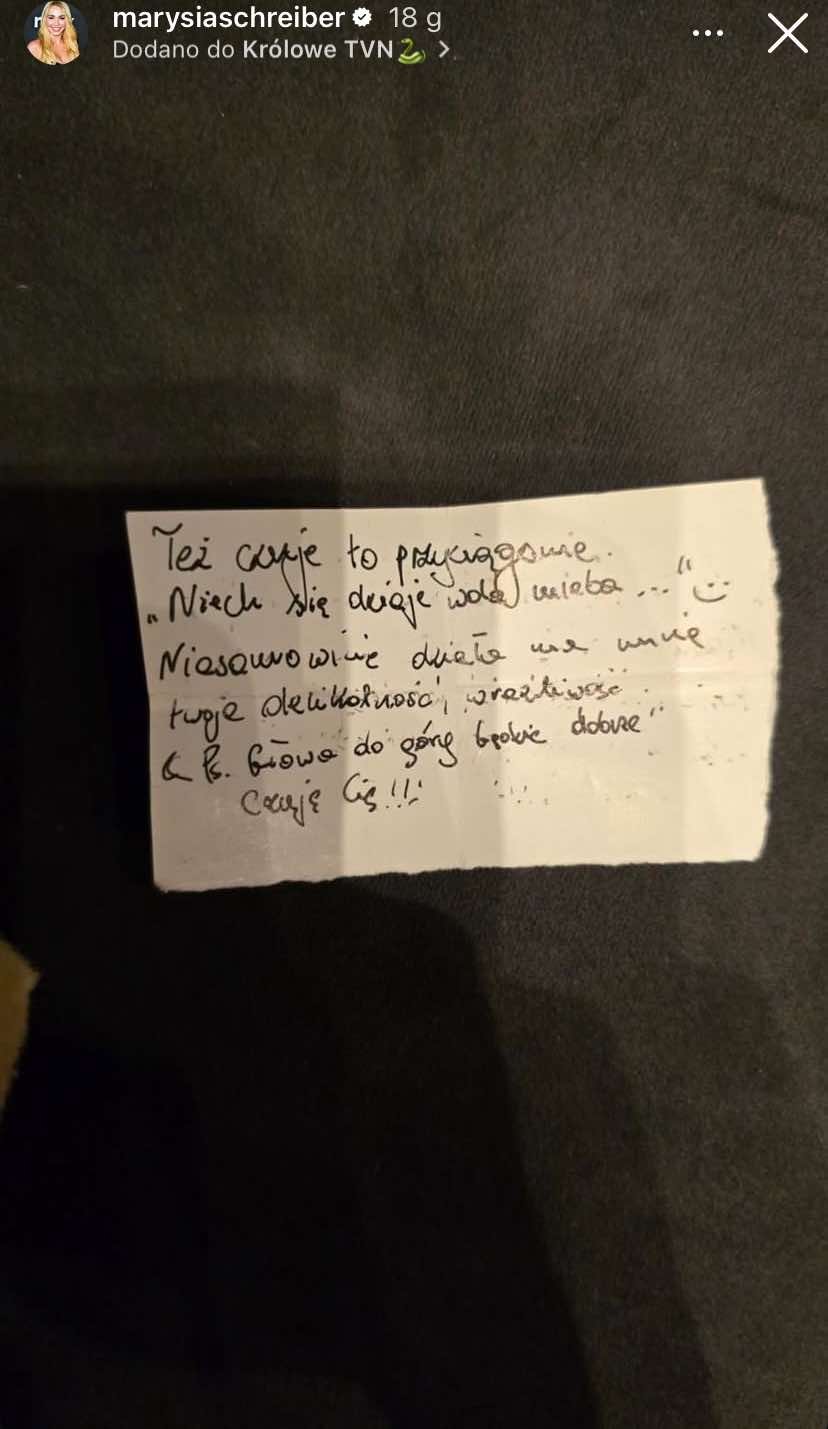 marysiaschreiber 18 g
Dodano do Królowe TVN🐍 >
Też czuje to przyciąganie.
„Niech się dzieje wola nieba ..." :)
Niesamowicie działa na mnie
twoja delikatność, wrażliwość.
Ps. Głowa do góry będzie dobrze"
Czuję Cię!!!